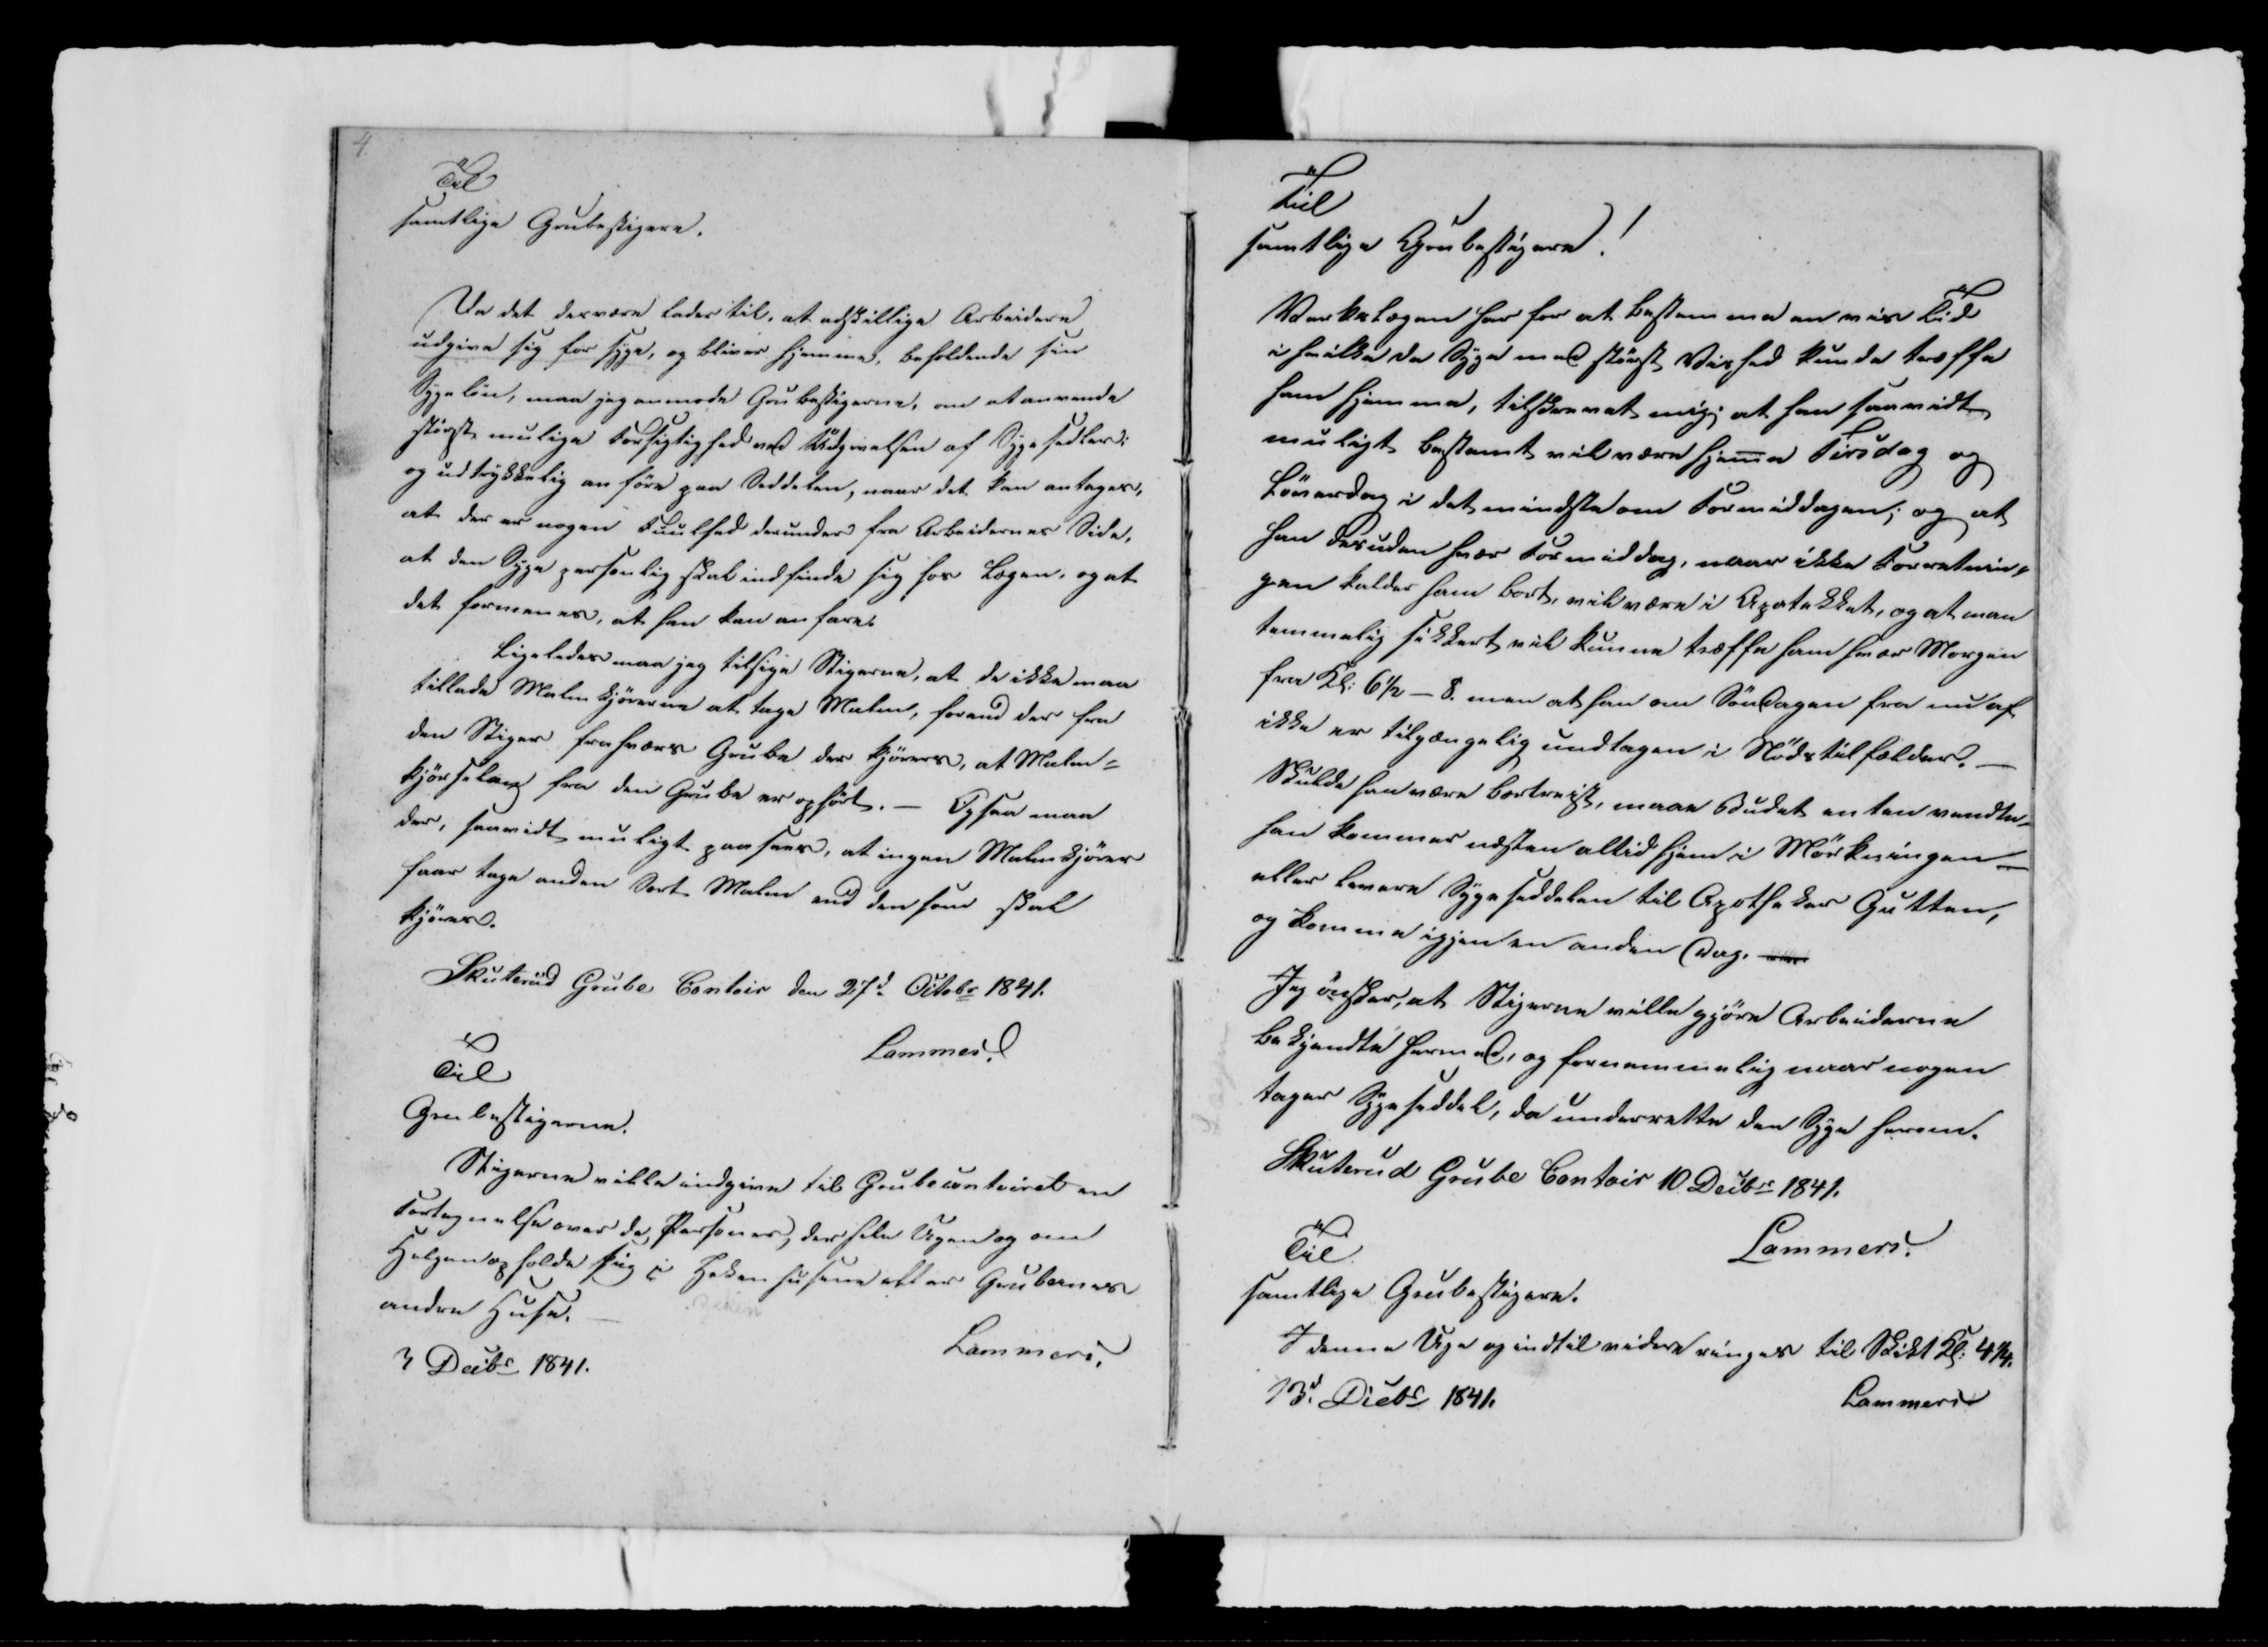 4
Til
samtlige Grubestigere.
Da det desværre lader til, at adskillige Arbeidere
udgive sig for syge, og bliver hjemme, beholdende sin
Sygelön, maa jeg anmode Grubestigerne, om at anvende
störst mulige Forsigtighed ved Udgivelsen af Sygesedler;
og udtrykkelig anföre paa Seddelen, naar det kan antages,
at der er nogen Fuulhed derunder fra Arbeidernes Side,
at den Syge personlig skal indfinde sig hos Lægen, og at
det formenes, at han kan anfare.
Ligeledes maa jeg tilsige Stigerne, at de ikke maa
tillade Malmkjörerne at tage Malm, forend der fra
den Stiger fra hvers Grube der kjöres, at Malm-
kjörselen fra den Grube er ophört. — Ogsaa maa
der, saavidt muligt paasees, at ingen Malmkjörer
faar tage anden Sort Malm end den som skal
kjöres.
Skuterud Grube Contoir den 27d Octobr 1841.
Lammers.
Til
Grubestigerne.
Stigerne ville indgive til Grubecontoiret en
Fortegnelse over de Personer, der hele Ugen og om
Helgen opholde sig i Hakenhusene eller Grubernes
andre Huse. —
3 Decbr 1841.
Lammers.
Til
samtlige Grubestigere!
Værkslægen har for at bestemme en vis Tid
i hvilke de Syge med störst Vished kunde træffe
ham hjemme, tilskrevet mig; at han saavidt
muligt bestemt vil være hjemme Tirsdag og
Löverdag i det mindste om Formiddagen; og at
han desuden hver Formiddag, naar ikke Forretnin-
gen kalder ham bort, vil være i Apotekket, og at man
temmelig sikkert vil kunne træffe ham hver Morgen
fra Kl: 6½ — 8. men at han om Söndagen fra nu af
ikke er tilgængelig undtagen i Nödstilfælder. —
Skulde han være bortreist, maae Budet enten vendte-
han kommer næsten altid hjem i Mörkningen —
eller levere Sygeseddelen til Apotheker Gutten,
og komme igjen en anden Dag.
Jeg önsker, at Stigerne ville gjöre Arbeiderne
bekjendte hermed, og fornemmelig naar nogen
tager Sygeseddel, da underrette den Syge herom.
Skuterud Grube Contoir 10 Decbr 1841.
Lammers.
Til
samtlige Grubestigere.
I denne Uge og indtil videre ringes til Skikt Kl: 4¼.
13d. Decbr 1841.
Lammers